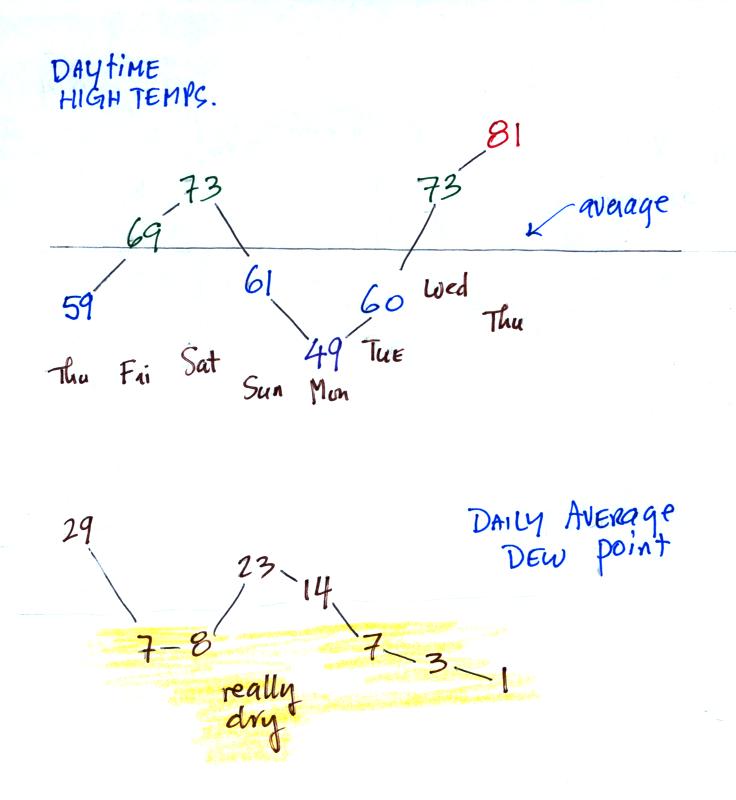 DAYTIME
HIGH TEMPS.
81
73 73
69
average
61
59 60
Wed
Thu
49 TUE
Thu Fri Sat
Sun Mon
29
DAILY AVERAGE
DEW point
23
14
7 - 8 7
3
1
really
dry